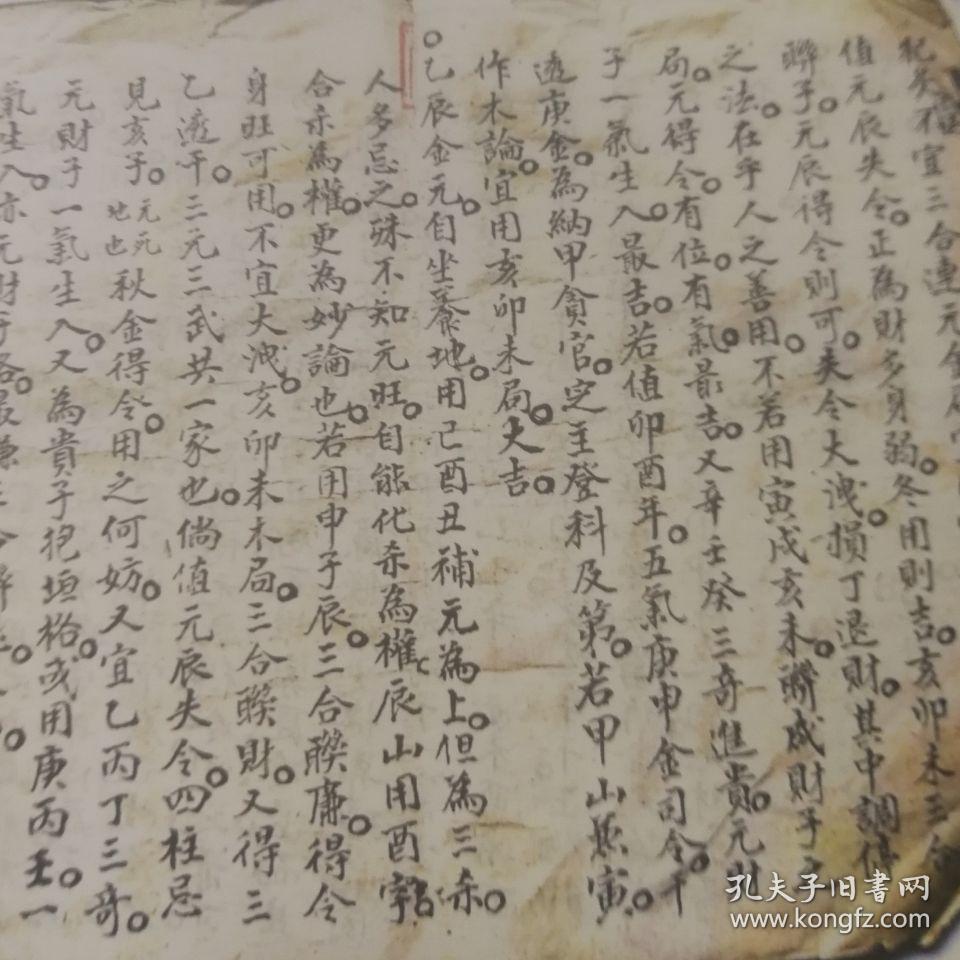 犯矣不宜三合連元金局
值元辰失令。正為財多身弱。冬用則吉。亥卯未三合
聯子。元辰得令則可。失令大洩。損丁退財。其中調停
之法。在乎人之善用。不若用寅戌亥未。聯成財子
局。元得令。有位。有氣最吉。又辛壬癸三奇進貴。元
子一氣生入。最吉。若值卯酉年。五氣庚申金司令。干
透庚金。為納甲貪官。定主登科及第。若甲山兼寅。
作木論。宜用亥卯未局。大吉。
。乙辰金元。自坐養地。用己酉丑補元為上。但為三殺。
人多忌之。殊不知元旺。自能化殺為權、辰山用酉
合杀為權。更為妙論也。若用申子辰。三合聯廉。得令
身旺可用。不宜大洩。亥卯未木局。三合聯財。又得三
乙透干。三元三武共一家也。倘值元辰失令。四柱忌
見亥子。元元地也秋金得令。用之何妨。又宜乙丙丁三奇。
元財子一氣生入。又為貴子抱垣格。或用庚丙壬。一
氣生入。亦元財子格。最
孔夫子旧书网
www.kongfz.com